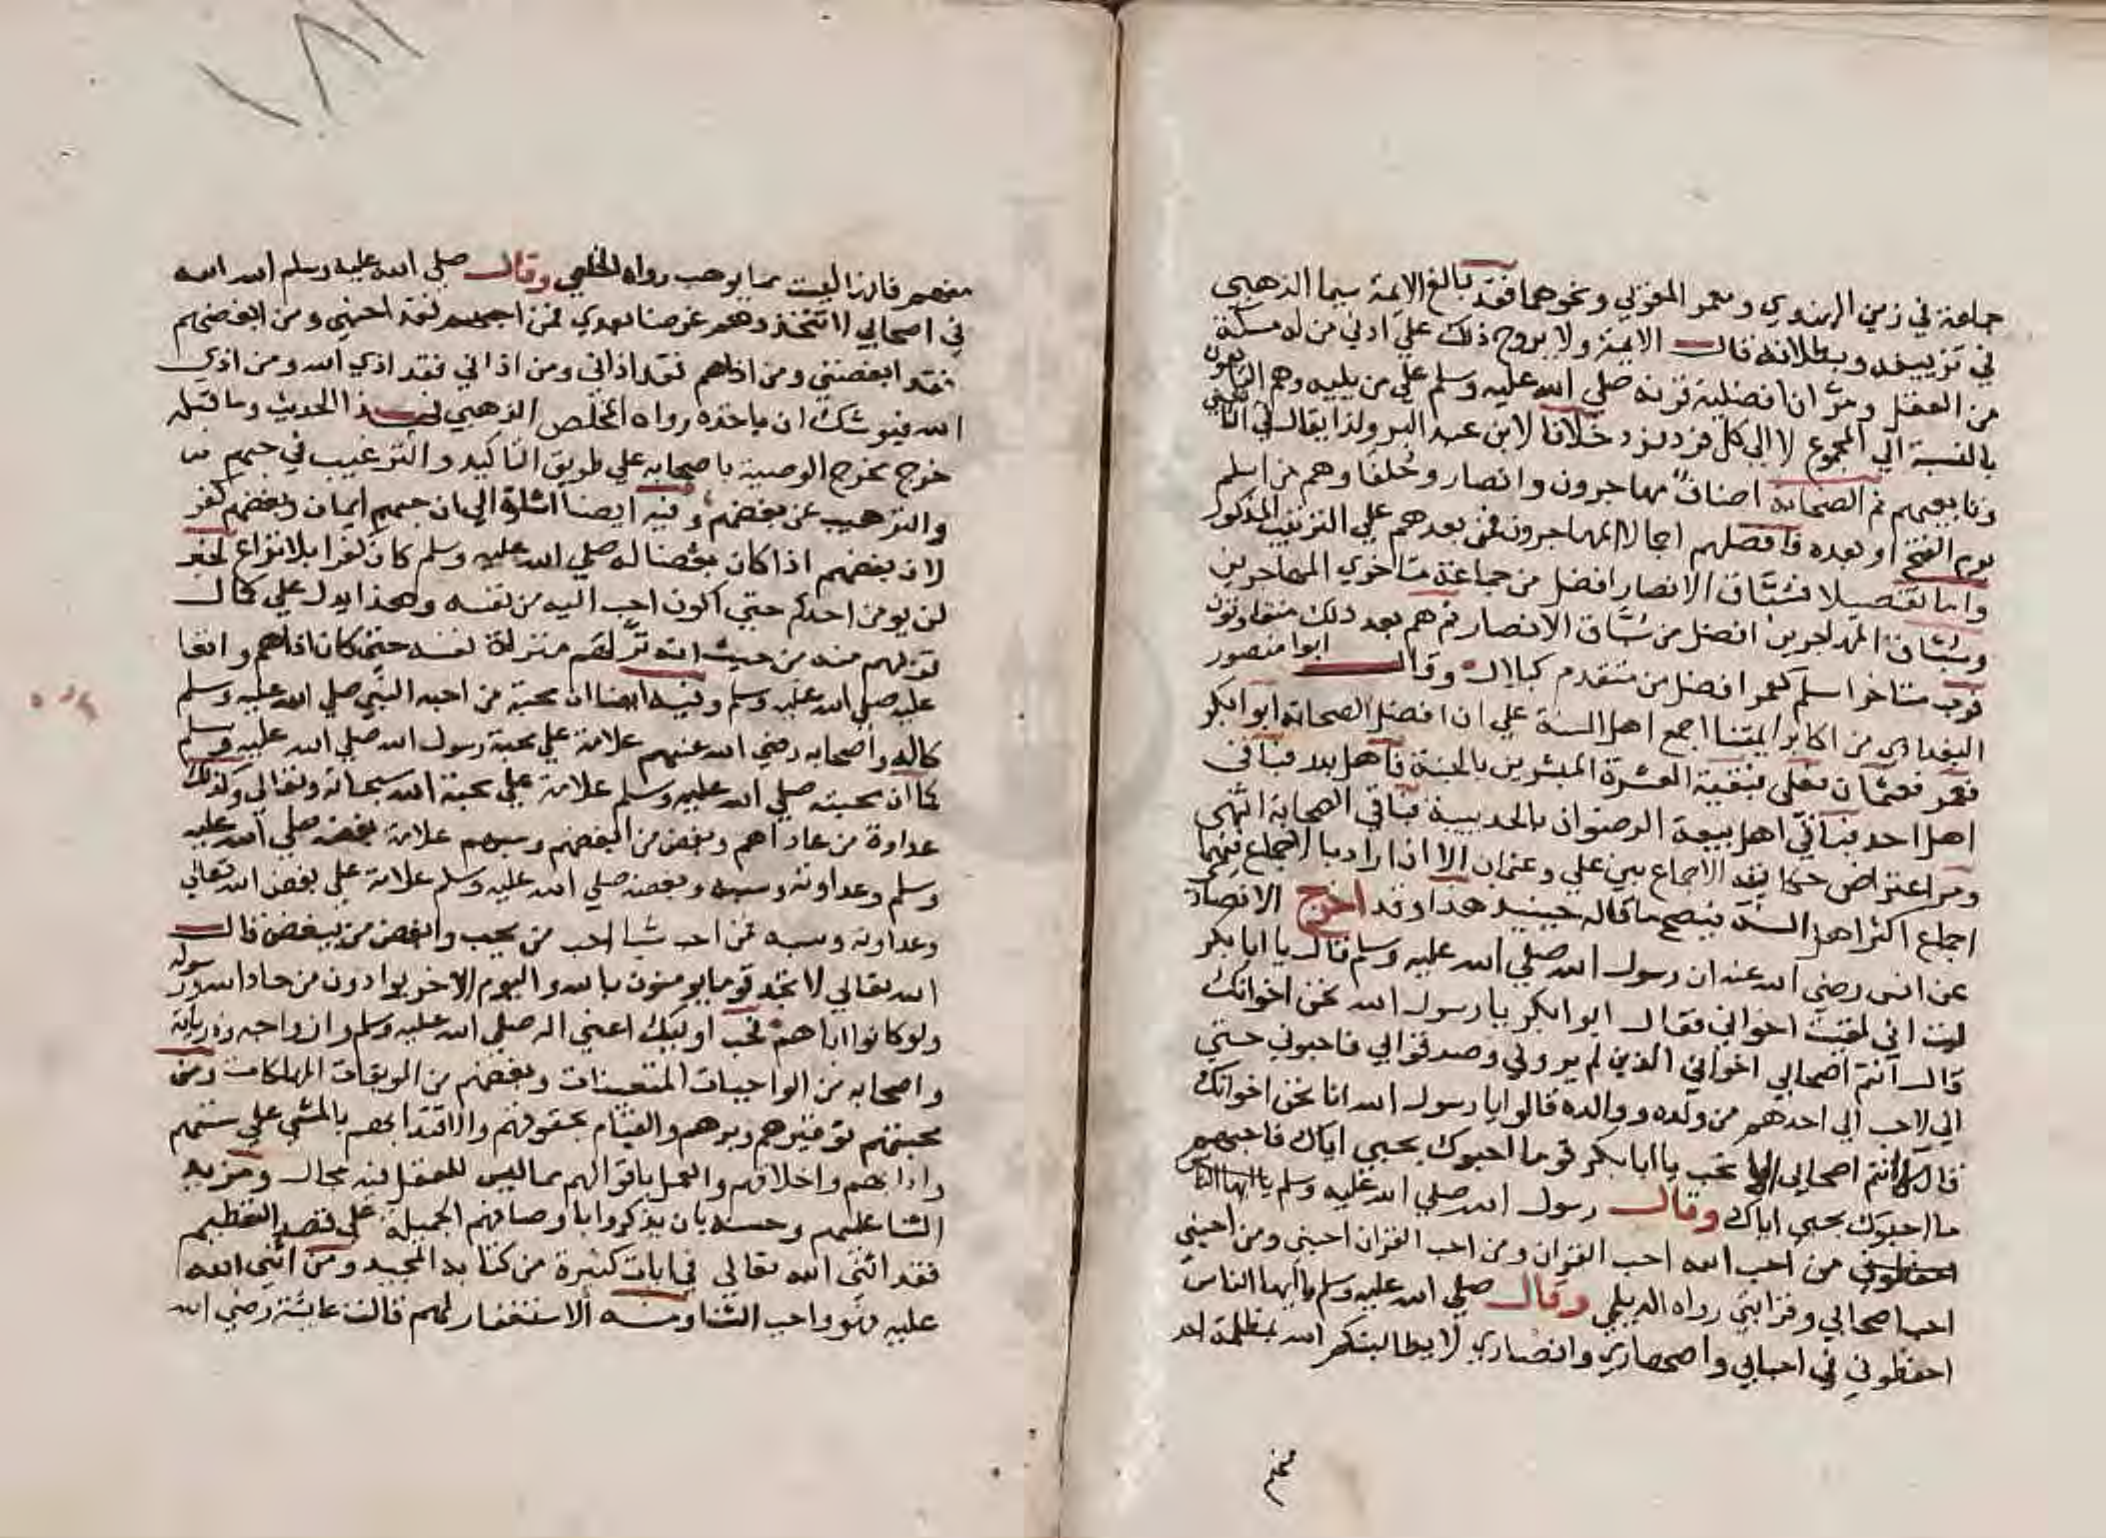 جماعة في زمن الهندي ومعمر المغزلي ونحوهما فقد بالغ الايمة سيما الذهبي
في تزييفه وبطلانه قال الايمة ولا يروج ذلك علي ادني من له مسكة
من العقل ومر ان افضلية قرنه صلي الله عليه وسلم علي من يليه وهم التابعون
بالنسبة الي المجموع لا الي كل فرد فرد خلافا لابن عبد البر ولذا يقال في التابعين
وتابعيهم ثم الصحابة اصناف مهاجرون وانصار وخلفا وهم من اسلم
يوم الفتح او بعده فافضلهم اجمالا المهاجرون فمن بعدهم علي الترتيب المذكور
واما تفصيلا فسباق الانصار افضل من جماعة متاخري المهاجرين
وسباق المهاجرين افضل من سباق الانصار ثم هم بعد ذلك متفاوتون
فرب متاخر اسلم كعمر افضل من متقدم كبلال وقال ابوا منصور
البغدادي من اكابر ايمتنا اجمع اهل السنة علي ان افضل الصحابة ابوا بكر
فعمر فعثمان فعلي فبقية العشرة المبشرين بالجنة فاهل بدر فباقي
اهل احد فباقي اهل بيعة الرضوان بالحديبية فباقي الصحابة انتهي
ومر اعتراض حكاية الاجماع بين علي وعثمان الا ان اراد بالاجماع فيهما
اجماع اكثر اهل السنة فيصح ما قاله حينيذ هذا وقد اخرج الانصاري
عن انس رضي الله عنه ان رسول الله صلي الله عليه وسلم قال يا ابا بكر
ليت اني لقيت اخواني فقال ابوا بكر يا رسول الله نحن اخوانك
قال انتم اصحابي اخواني الذين لم يروني وصدقوا بي فاحبوني حتي
اني لاحب الي احدهم من ولده ووالده قالوا يا رسول الله انا نحن اخوانك
قال انتم اصحابي الا تحب يا ابا بكر قوما احبوك بحبي اياك فاحبهم
ما احبوك بحبي اياك وقال رسول الله صلي الله عليه وسلم يا ايها الناس
احفظوني من احب الله احب القران ومن احب القران احبني ومن احبني
احب اصحابي وقرابتي رواه الديلمي وقال صلي الله عليه وسلم يا ايها الناس
احفظوني في احبابي واصهاري وانصاري لا يطالبنكم الله بمظلمة احد
منهم
١٨١
منهم فانها ليست مما يوهب رواه الخلعي وقال صلي الله عليه وسلم الله الله
في اصحابي لا تتخذوهم غرضا بعدي فمن احبهم فقد احبني ومن ابغضهم
فقد ابغضني ومن اذاهم فقد اذاني ومن اذاني فقد اذي الله ومن اذي
الله فيوشك ان ياخذه رواه المخلص الذهبي فهذا الحديث وما قبله
خرج مخرج الوصية باصحابه علي طريق التاكيد والترغيب في حبهم
والترهيب عن بغضهم وفيه ايضا اشارة الي ان حبهم ايمان وبغضهم كفر
لان بغضهم اذا كان بغضا له صلي الله عليه وسلم كان كفرا بلا نزاع لخبر
لن يومن احدكم حتي اكون احب اليه من نفسه وهذا يدل علي كمال
قربهم منه من حيث انه نزلهم منزلة نفسه حتي كان اذاهم واقعا
عليه صلي الله عليه وسلم وفيه ايضا ان محبة من احبه النبي صلي الله عليه وسلم
كاله واصحابه رضي الله عنهم علامة علي محبة رسول الله صلي الله عليه وسلم
كما ان محبته صلي الله عليه وسلم علامة علي محبة الله سبحانه وتعالي وكذلك
عداوة من عاداهم وبغض من ابغضهم وسبهم علامة بغضه صلي الله عليه
وسلم وعداوته وسبه وبغضه صلي الله عليه وسلم علامة علي بغض الله تعالي
وعداوته وسبه فمن احب شيا احب من يحب وابغض من يبغض قال
الله تعالي لا تجد قوما يومنون بالله واليوم الاخر يوادون من حاد الله ورسوله
ولو كانوا اباهم فحب اوليك اعني اله صلي الله عليه وسلم وازواجه وذرياته
واصحابه من الواجبات المتعينات وبغضهم من الموبقات المهلكات ومن
محبتهم توقيرهم وبرهم والقيام بحقوقهم والاقتدا بهم بالمشي علي سنتهم
وادابهم واخلاقهم والعمل باقوالهم مما ليس للعقل فيه مجال ومزيد
الثنا عليهم وحسنه بان يذكروا باوصافهم الجميلة علي قصد التعظيم
فقد اثني الله تعالي في ايات كثيرة من كتابه المجيد ومن اثني الله
عليه فهو واجب الثنا ومنه الاستغفار لهم قالت عايشة رضي الله